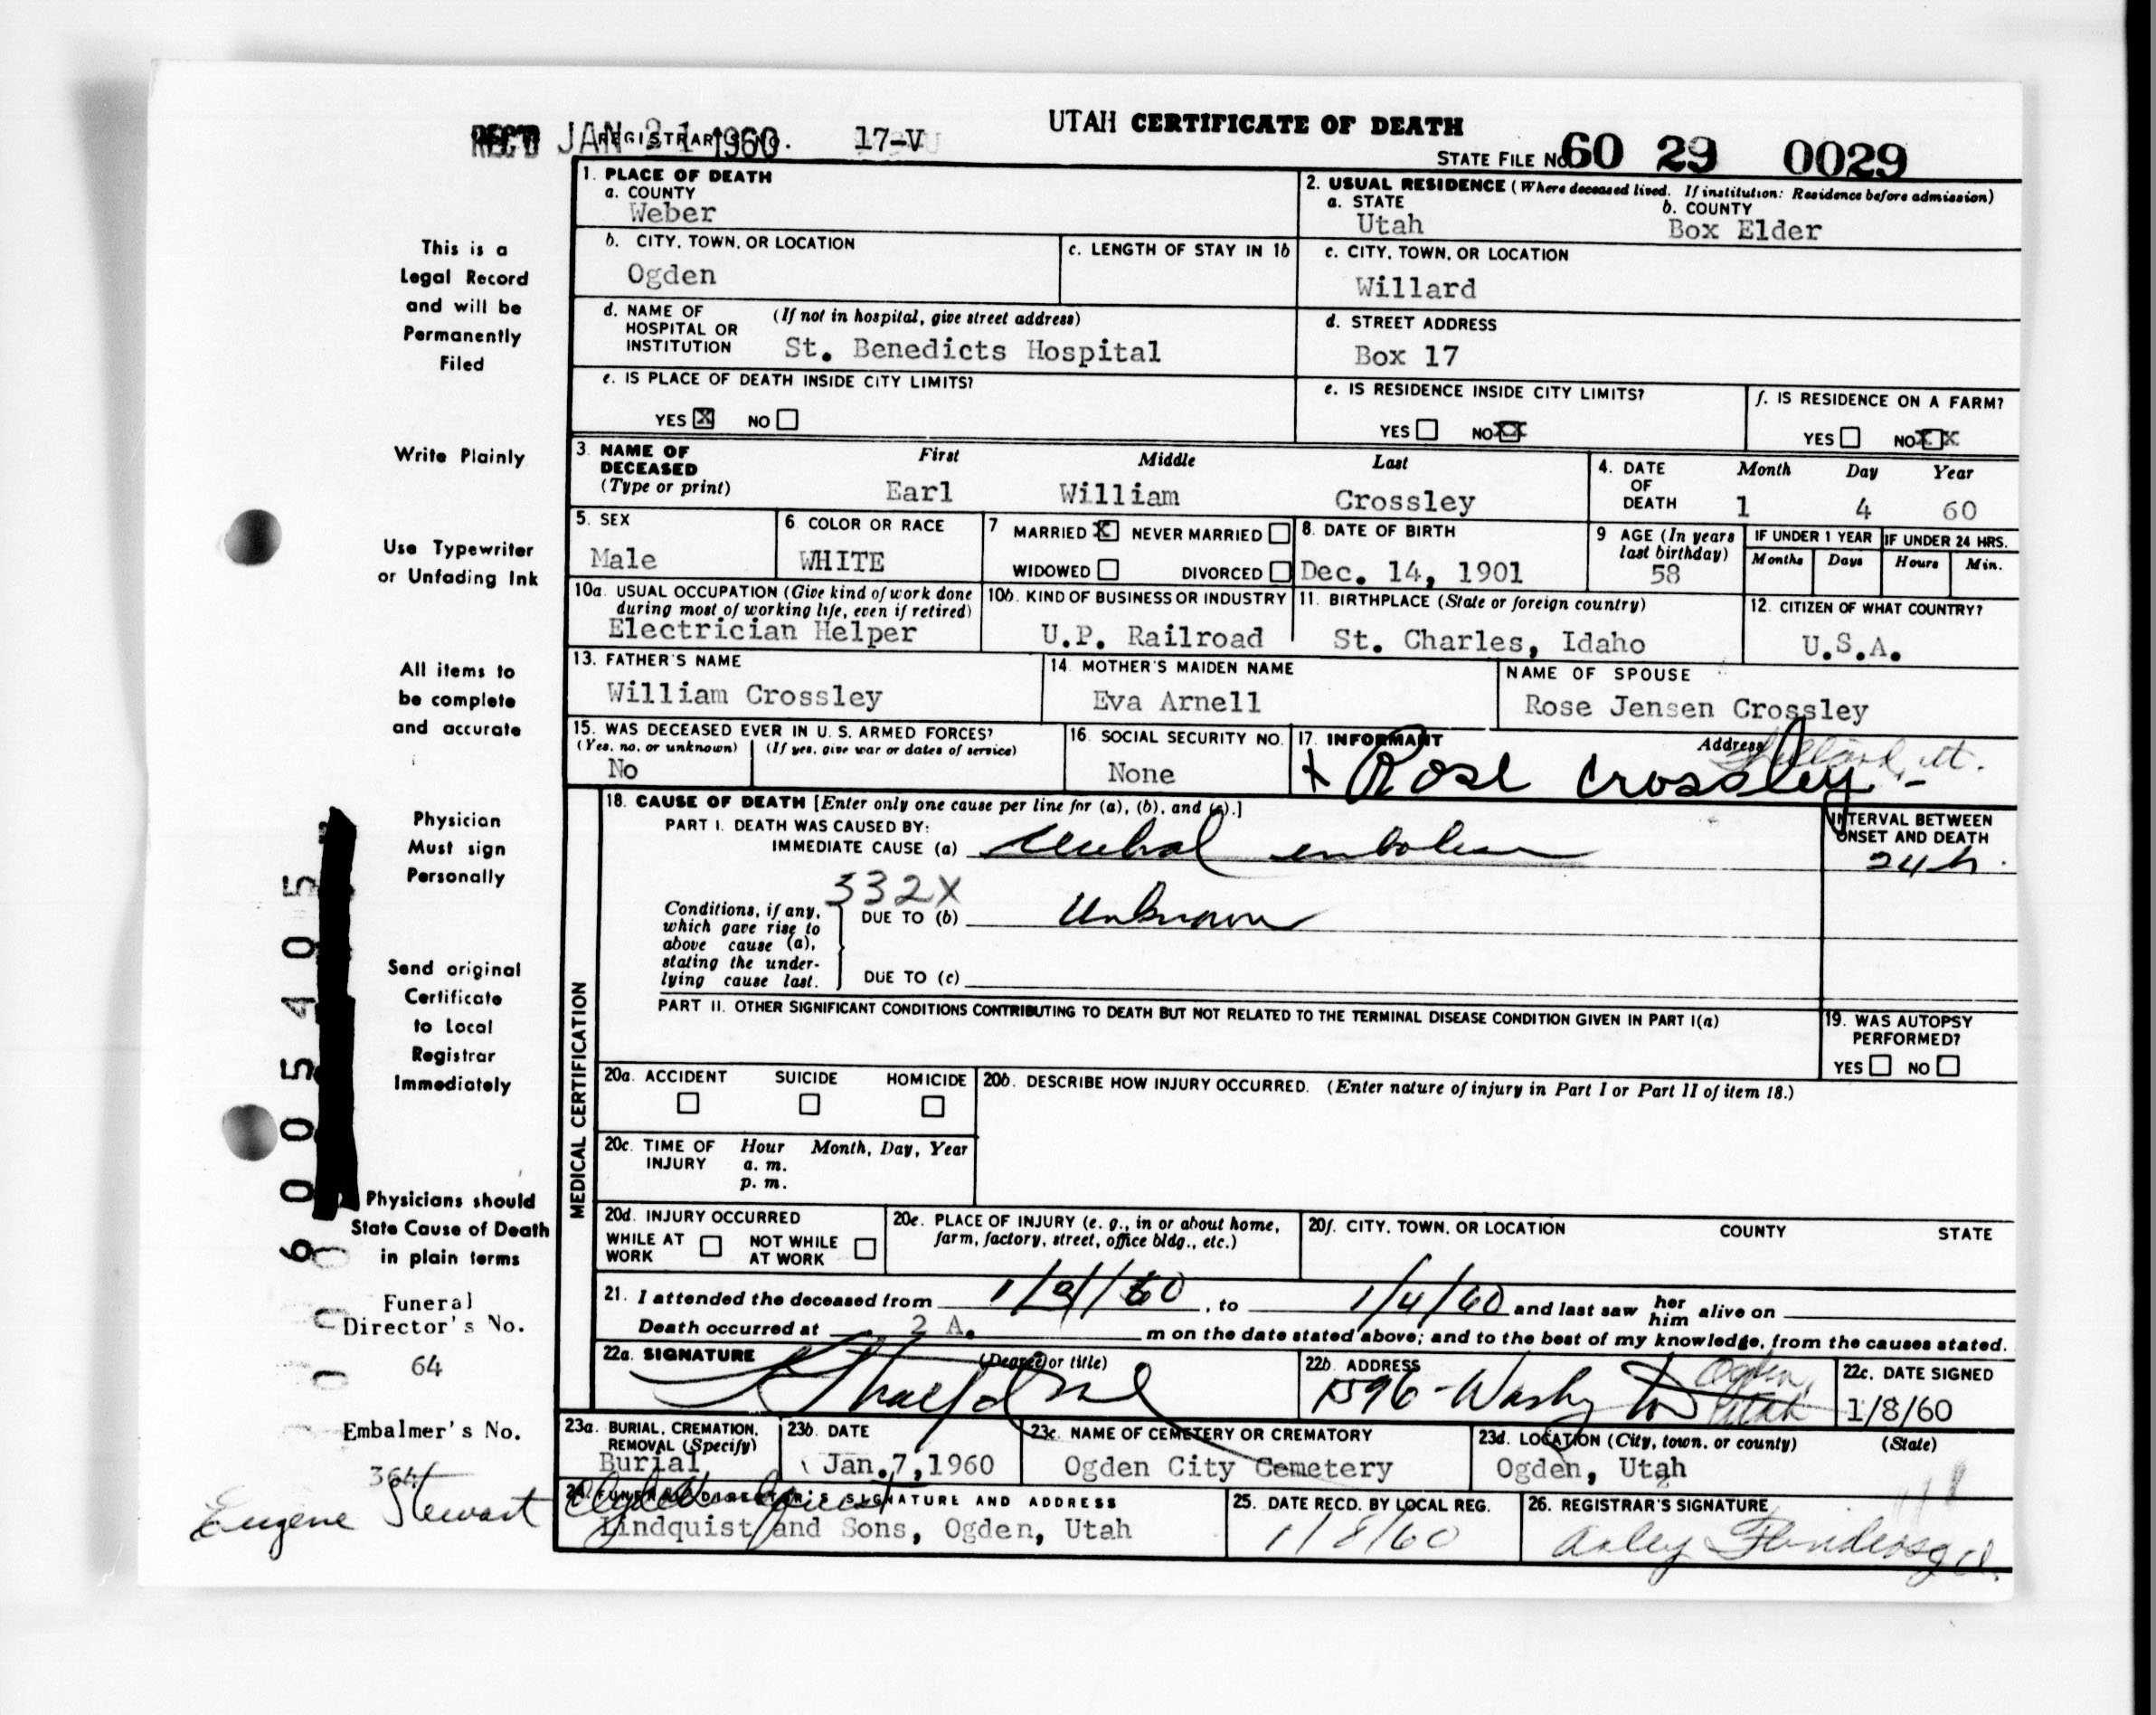 UTAH CERTIFICATE OF DEATH
REC'D JAN 21 1960 REGISTRAR'S NO. 17-V
STATE FILE No. 60 29 0029
1. PLACE OF DEATH
a. COUNTY
Weber
2. USUAL RESIDENCE (Where deceased lived. If institution: Residence before admission)
a. STATE
Utah
b. COUNTY
Box Elder
b. CITY, TOWN, OR LOCATION
Ogden
c. LENGTH OF STAY IN 1b
c. CITY, TOWN, OR LOCATION
Willard
d. NAME OF HOSPITAL OR INSTITUTION
(If not in hospital, give street address)
St. Benedicts Hospital
d. STREET ADDRESS
Box 17
e. IS PLACE OF DEATH INSIDE CITY LIMITS?
YES X NO
e. IS RESIDENCE INSIDE CITY LIMITS?
YES NO XX
f. IS RESIDENCE ON A FARM?
YES NO XX
3. NAME OF DECEASED (Type or print)
First Middle Last
Earl William Crossley
4. DATE OF DEATH
Month Day Year
1 4 60
5. SEX
Male
6 COLOR OR RACE
WHITE
7 MARRIED X NEVER MARRIED
WIDOWED DIVORCED
8. DATE OF BIRTH
Dec. 14, 1901
9 AGE (In years last birthday)
58
IF UNDER 1 YEAR
Months Days
IF UNDER 24 HRS.
Hours Min.
10a. USUAL OCCUPATION (Give kind of work done
during most of working life, even if retired)
Electrician Helper
10b. KIND OF BUSINESS OR INDUSTRY
U.P. Railroad
11. BIRTHPLACE (State or foreign country)
St. Charles, Idaho
12. CITIZEN OF WHAT COUNTRY?
U.S.A.
13. FATHER'S NAME
William Crossley
14. MOTHER'S MAIDEN NAME
Eva Arnell
NAME OF SPOUSE
Rose Jensen Crossley
15. WAS DECEASED EVER IN U. S. ARMED FORCES?
(Yes, no, or unknown) (If yes, give war or dates of service)
No
16. SOCIAL SECURITY NO.
None
17. INFORMANT Address
Rose Crossley
Willard, Ut.
MEDICAL CERTIFICATION
18. CAUSE OF DEATH [Enter only one cause per line for (a), (b), and (c).]
PART I. DEATH WAS CAUSED BY:
IMMEDIATE CAUSE (a) Cerebral embolism
INTERVAL BETWEEN ONSET AND DEATH
24 h.
332X
Conditions, if any,
which gave rise to
above cause (a),
stating the under-
lying cause last.
DUE TO (b) Unknown
DUE TO (c)
PART II. OTHER SIGNIFICANT CONDITIONS CONTRIBUTING TO DEATH BUT NOT RELATED TO THE TERMINAL DISEASE CONDITION GIVEN IN PART I(a)
19. WAS AUTOPSY PERFORMED?
YES NO
20a. ACCIDENT SUICIDE HOMICIDE
20b. DESCRIBE HOW INJURY OCCURRED. (Enter nature of injury in Part I or Part II of item 18.)
20c. TIME OF INJURY
Hour Month, Day, Year
a. m.
p. m.
20d. INJURY OCCURRED
WHILE AT WORK NOT WHILE AT WORK
20e. PLACE OF INJURY (e. g., in or about home,
farm, factory, street, office bldg., etc.)
20f. CITY, TOWN, OR LOCATION COUNTY STATE
21. I attended the deceased from 1/3/60, to 1/4/60 and last saw her him alive on
Death occurred at 2 A. m on the date stated above; and to the best of my knowledge, from the causes stated.
22a. SIGNATURE (Degree or title)
22b. ADDRESS
Ogden, Utah
22c. DATE SIGNED
1/8/60
23a. BURIAL, CREMATION, REMOVAL (Specify)
Burial
23b. DATE
Jan. 7, 1960
23c. NAME OF CEMETERY OR CREMATORY
Ogden City Cemetery
23d. LOCATION (City, town, or county) (State)
Ogden, Utah
24. FUNERAL DIRECTOR'S SIGNATURE AND ADDRESS
Lindquist and Sons, Ogden, Utah
25. DATE RECD. BY LOCAL REG.
1/8/60
26. REGISTRAR'S SIGNATURE
This is a
Legal Record
and will be
Permanently
Filed
Write Plainly
Use Typewriter
or Unfading Ink
All items to
be complete
and accurate
Physician
Must sign
Personally
Send original
Certificate
to Local
Registrar
Immediately
Physicians should
State Cause of Death
in plain terms
Funeral
Director's No.
64
Embalmer's No.
364
Eugene Stewart
60005405